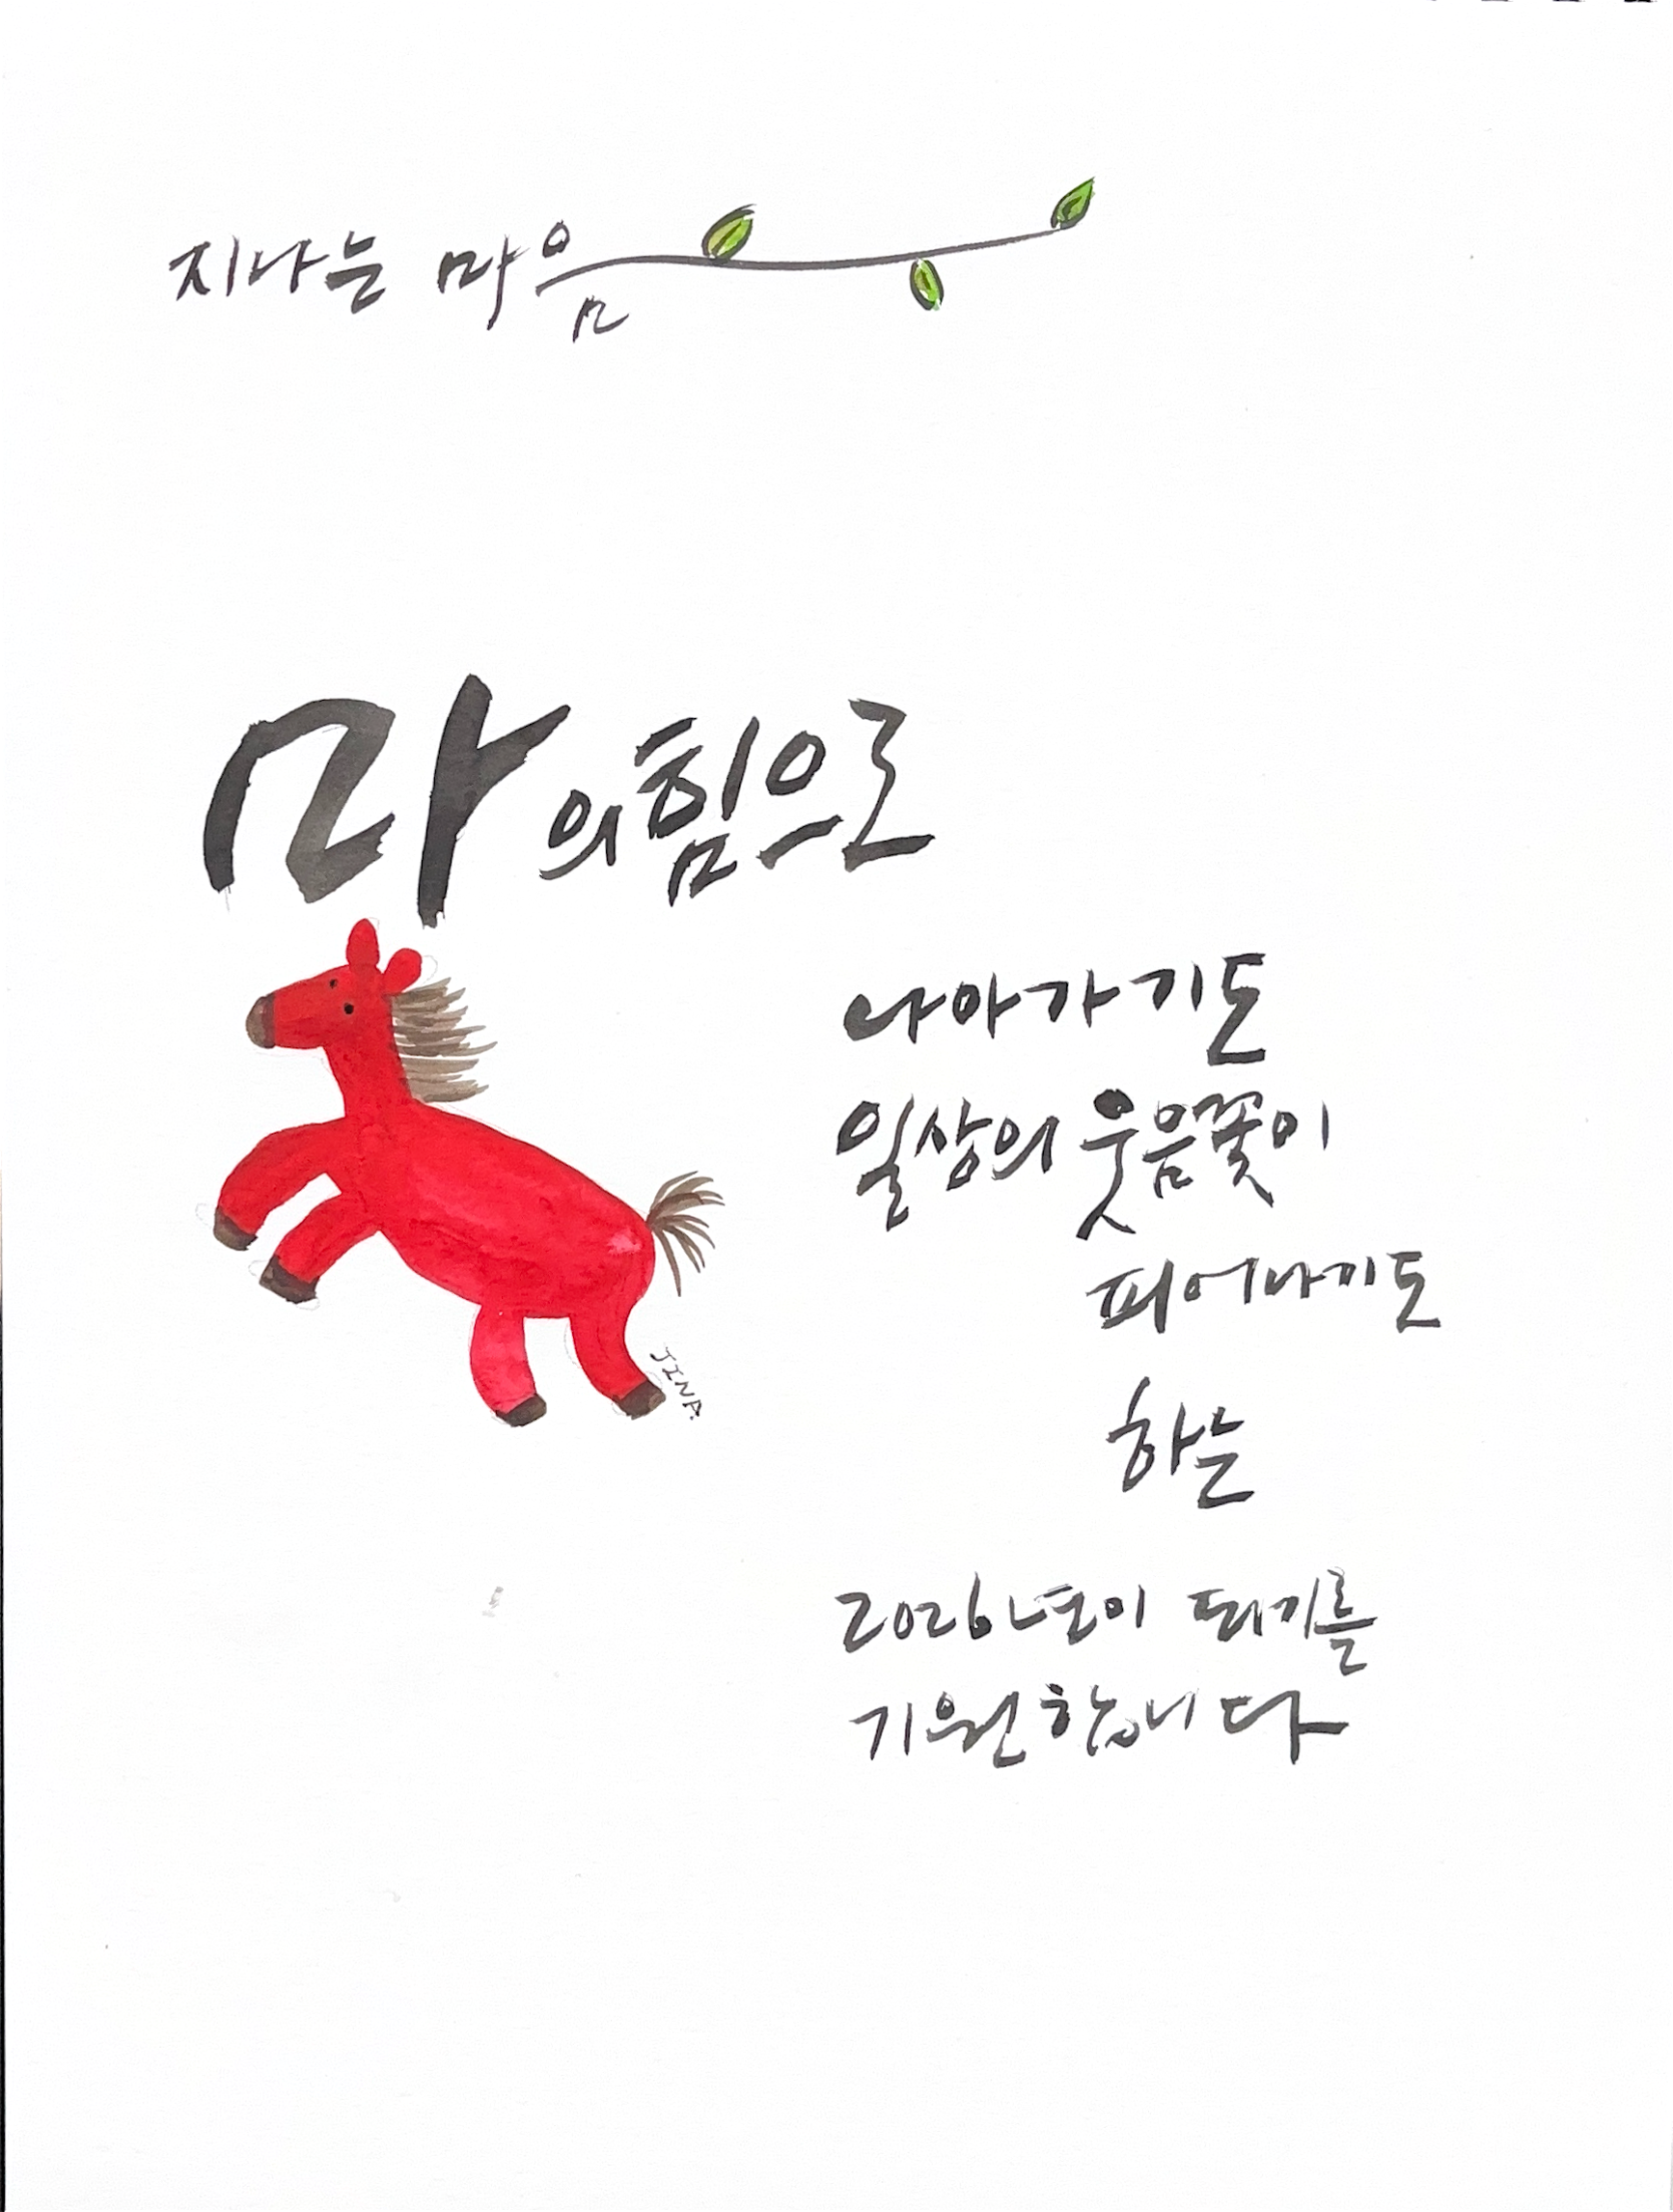 지나는 마음
마의 힘으로
나아가기도
일상의 웃음꽃이
피어나기도
하는
2026년이 되기를
기원합니다
JINA.